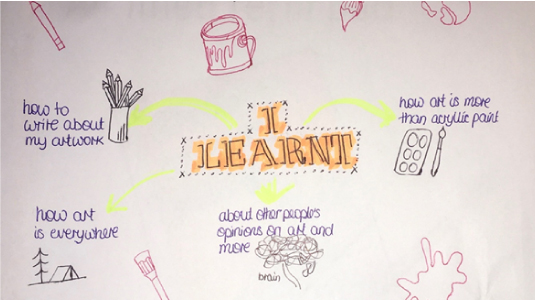 I
LEARNT
how to
write about
my artwork
how art is more
than acryllic paint
how art
is everywhere
about other peoples
opinions on art and
more
brain